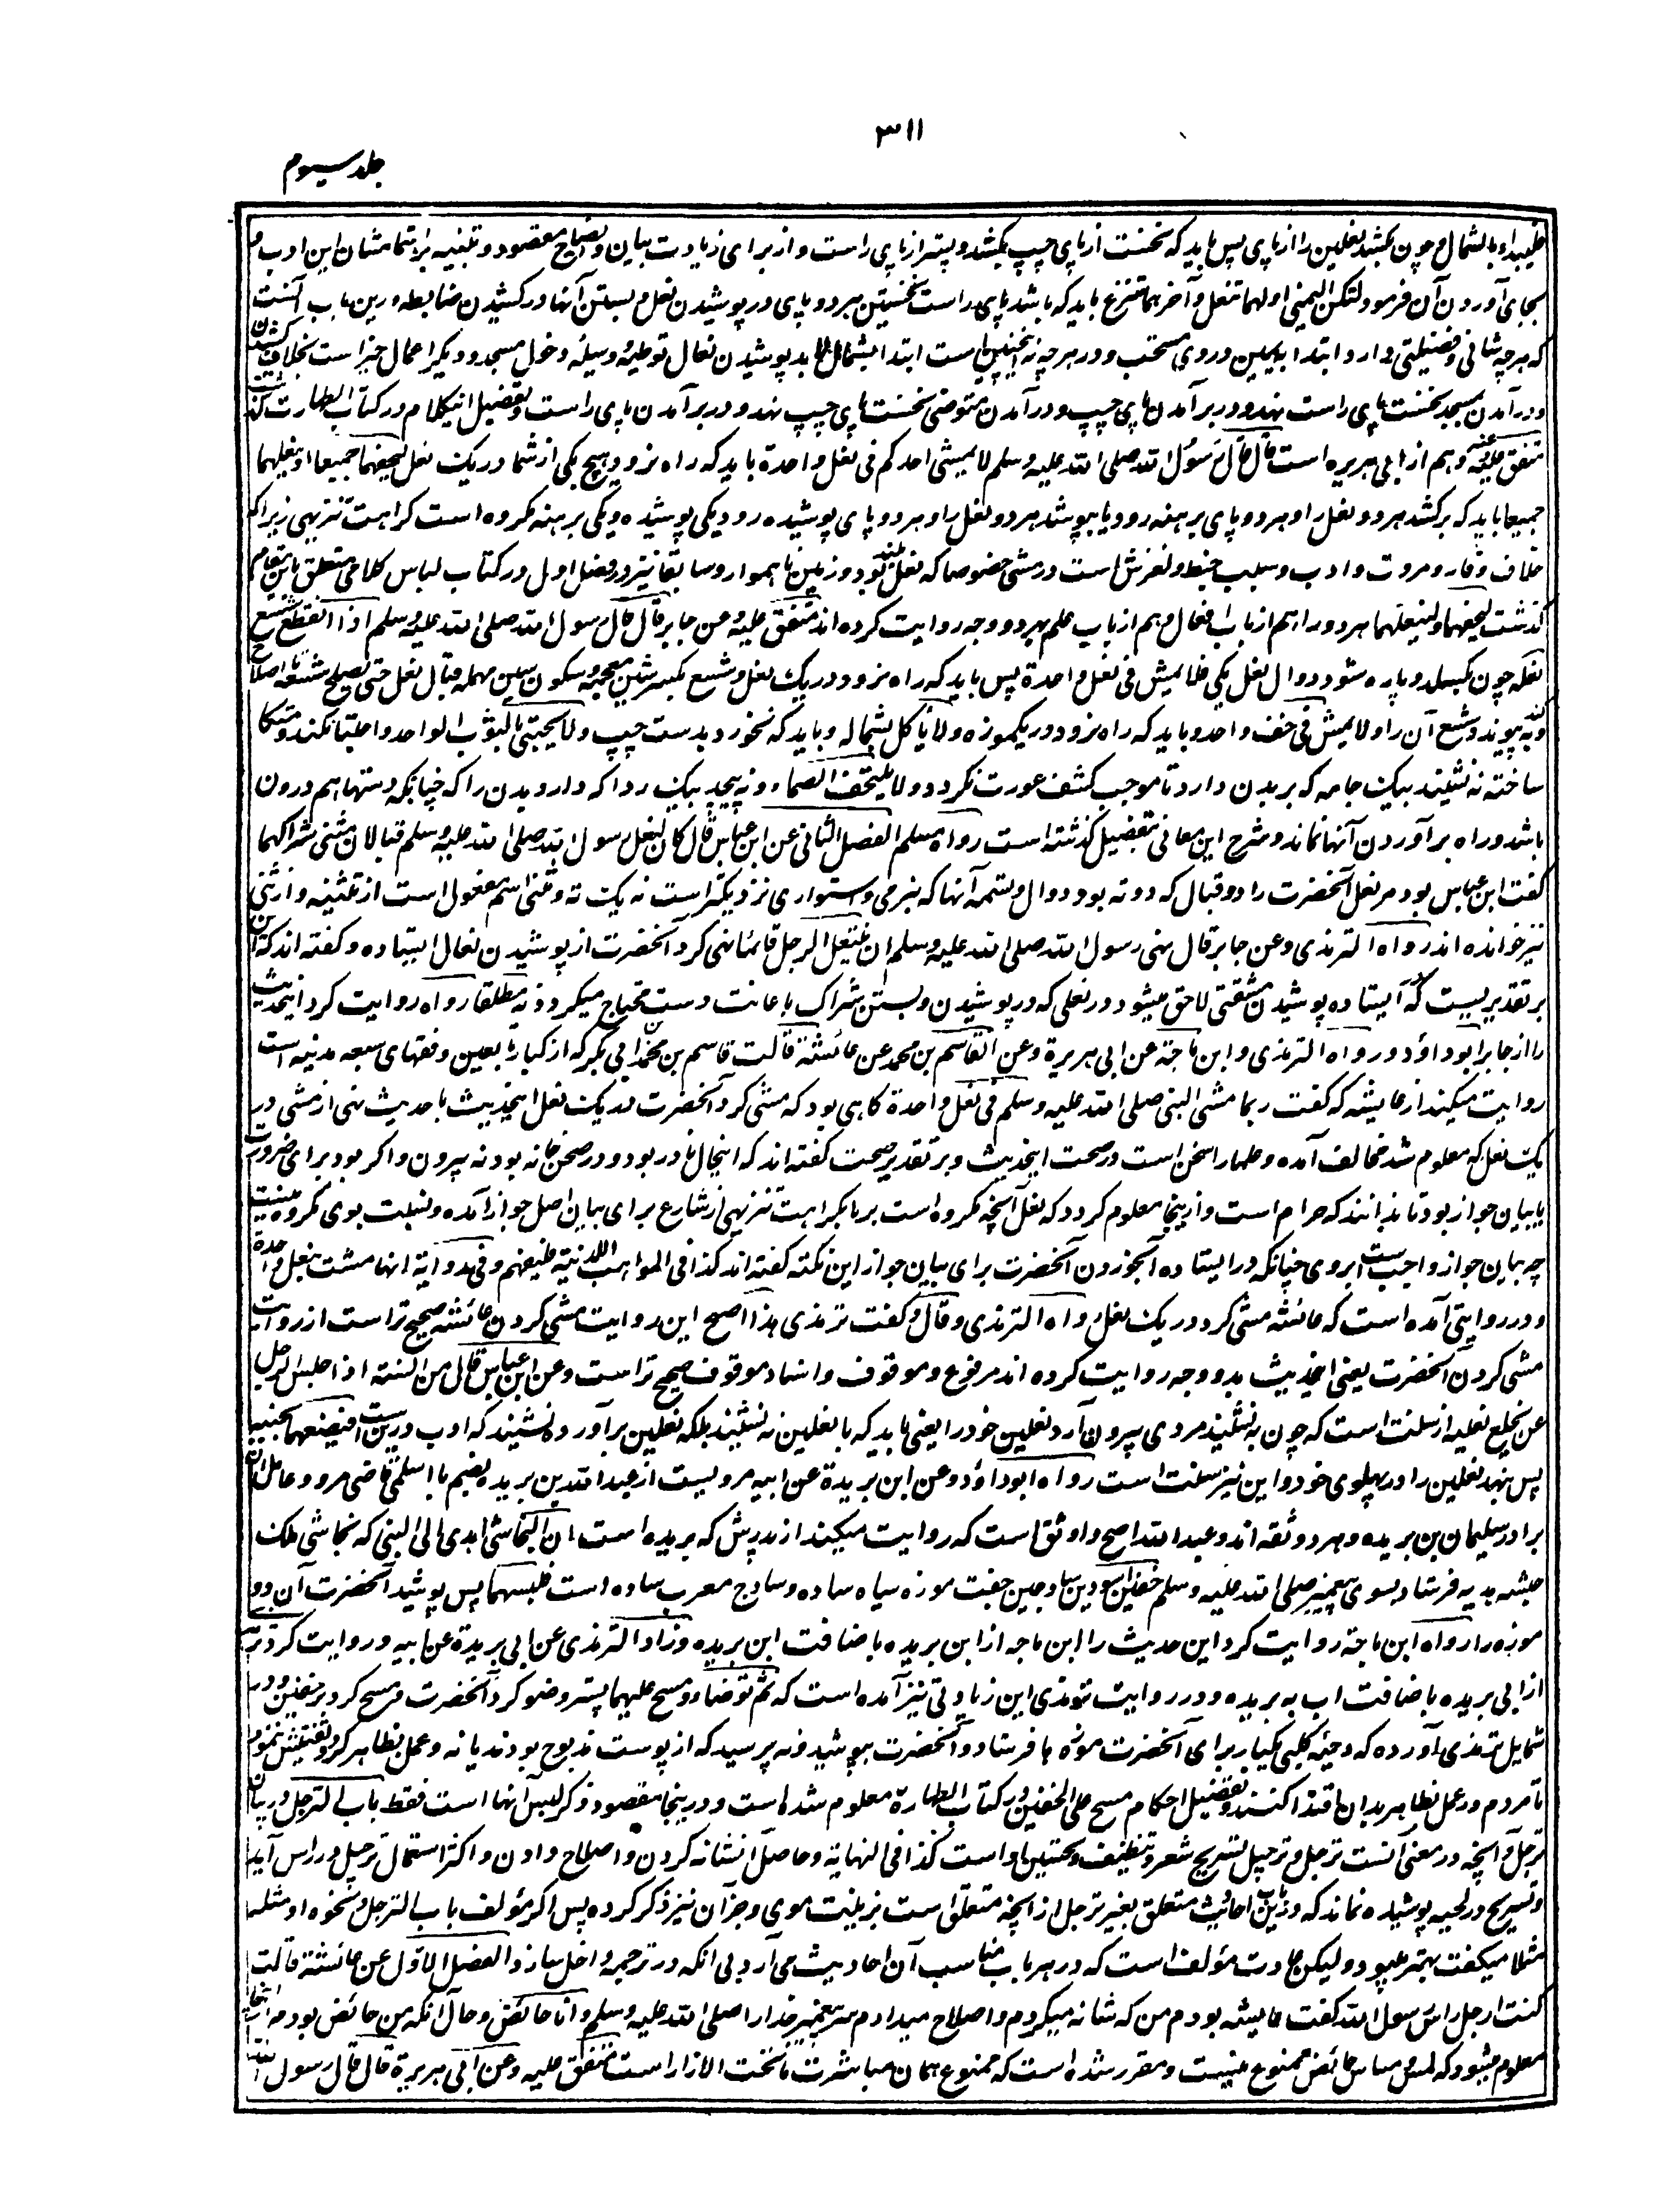 ۳۱۱
جلد سیوم
فلیبدأ بالشمال و چون بکشد نعلین را از پای پس باید که نخست از پای چپ بکشد و پستر از پای راست و از برای زیادت بیان و ایضاح مقصود و تنبیه بر اهتمام شان این ادب و
بجای آوردن آن فرمود لتکن الیمنی اولهما تنعل و آخرهما تنزع باید که باشد پای راست نخستین هر دو پای در پوشیدن نعل و پستین آنها در کشیدن ضابطه درین باب آنست
که هر چه شانی و فضیلتی دارد ابتدا بیمین در وی مستحب و در هر چه نه اینچنین است ابتدا بشمال باید پوشیدن نعال توطیه و وسیله دخول مسجد و دیگر اعمال خیر است بخلاف کشیدن
و در آمدن مسجد نخست پای راست نهد و در بر آمدن پای چپ و در آمدن متوضی نخست پای چپ نهد و در بر آمدن پای راست و تفصیل اینکلام در کتاب الطهارت گذشت
متفق علیه و عنه و هم از ابی هریره است قال قال رسول الله صلی الله علیه وسلم لا یمشی احدکم فی نعل واحدة باید که راه نرود هیچ یکی از شما در یک نعل لیحفهما جمیعا او لینعلهما
جمیعا باید که برکشد هر دو نعل را و هر دو پای برهنه رود یا بپوشد هر دو نعل را و هر دو پای پوشیده رود و یکی پوشیده و یکی برهنه مکروه است کراهت تنزیهی زیرا که
خلاف وقار و مروت و ادب و سبب خبط و لغزش است در مشی خصوصا که نعل بلند بود و زمین ناهموار و سابقا نیز در فصل اول در کتاب لباس کلامی متعلق باین مقام
گذشت لیحفهما و لینعلهما هر دو را هم از باب افعال و هم از باب علم بهر دو وجه روایت کرده اند متفق علیه وعن جابر قال قال رسول الله صلی الله علیه وسلم اذا انقطع شسع
نعله چون بگسلد و پاره شود دوال نعل یکی فلا یمش فی نعل واحدة پس باید که راه نرود در یک نعل و شسع بکسر شین معجمه و سکون سین مهمله قبال نعل حتی یصلح شسعه تا اصلاح
کند و به پیوند شسع آن را و لا یمش فی خف واحد و باید که راه نرود در یکموزه و لا یاکل بشماله و باید که نخورد بدست چپ و لا یحتبی بالثوب الواحد و احتبا نکند و متکا
ساخته نه نشیند بیک جامه که بر بدن دارد تا موجب کشف عورت نگردد و لا یلتحف الصماء و نه پیچد بیک ردا که دارد بدن را که چنانکه دستها هم درون
باشد و راه بر آوردن آنها نماند و شرح این معانی بتفصیل گذشته است رواه مسلم الفصل الثانی عن ابن عباس قال کان لنعل رسول الله صلی الله علیه وسلم قبالان مثنی شراکهما
گفت ابن عباس بود مر نعل آنحضرت را دو قبال که دو ته بود دوال و تسمه آنها که بنرمی و استواری نزدیکتر است نه یک ته و مثنی اسم مفعول است از تثنیه و از ثنی
نیز خوانده اند رواه الترمذی وعن جابر قال نهی رسول الله صلی الله علیه وسلم ان ینتعل الرجل قائما نهی کرد آنحضرت از پوشیدن نعال ایستاده و گفته اند که این
بر تقدیریست که ایستاده پوشیدن مشقتی لاحق میشود در نعلی که در پوشیدن و بستن شراک باعانت دست محتاج میگردد نه مطلقا رواه روایت کرد اینحدیث
را از جابر ابو داؤد و رواه الترمذی و ابن ماجة عن ابی هریرة وعن القاسم بن محمد عن عائشة قالت قاسم بن محمد بن ابی بکر که از کبار تابعین و فقهای سبعه مدینه است
روایت میکند از عایشه که گفت ربما مشی النبی صلی الله علیه وسلم فی نعل واحدة گاهی بود که مشی کرد آنحضرت در یک نعل اینحدیث با حدیث نهی از مشی در
یک نعل که معلوم شد مخالف آمده و علما را سخن است در صحت اینحدیث و بر تقدیر صحت گفته اند که اینحال نادر بود و در صحن خانه بود نه بیرون و اگر بود برای ضرورت
یا بیان جواز بود تا ندانند که حرام است و ازینجا معلوم گردد که نعل آنچه مکروه است بر ما بکراهت تنزیهی از شارع برای بیان اصل جواز آمده و نسبت بوی مکروه نیست
چه بیان جواز واجب است بروی چنانکه در ایستاده آبخوردن آنحضرت برای بیان جواز این نکته گفته اند کذا فی المواهب اللدنیة فلیفهم و فی روایة انها مشت بنعل واحدة
و در روایتی آمده است که عائشه مشی کرد در یک نعل رواه الترمذی و قال و گفت ترمذی هذا اصح این روایت مشی کردن عائشه صحیح تر است از روایت
مشی کردن آنحضرت یعنی اینحدیث بدو وجه روایت کرده اند مرفوع و موقوف و اسناد موقوف صحیح تر است وعن ابن عباس قال من السنة اذا جلس الرجل
ان یخلع نعلیه از سنت است که چون به نشیند مردی بیرون آرد نعلین خود را یعنی باید که با نعلین نه نشیند بلکه نعلین بر آورده نشیند که ادب درین است فیضعهما بجنبه
پس نهد نعلین را در پهلوی خود و این نیز سنت است رواه ابو داؤد وعن ابن بریدة عن ابیه مرویست از عبد الله بن بریده بضم با اسلمی قاضی مرو و عامل آن
برادر سلیمان بن بریده و هر دو ثقه اند و عبد الله اصح و اوثق است که روایت میکند از پدرش که بریده است ان النجاشی اهدی الی النبی که نجاشی ملک
حبشه هدیه فرستاد بسوی پیغمبر صلی الله علیه وسلم خفین اسودین ساذجین جفت موزه سیاه ساده و ساذج معرب ساده است فلبسهما پس پوشید آنحضرت آن دو
موزه را رواه ابن ماجة روایت کرد این حدیث را ابن ماجه از ابن بریده باضافت ابن بریده و زاد الترمذی عن ابی بریدة عن ابیه و روایت کرد ترمذی
از ابی بریده باضافت اب به بریده و در روایت ترمذی این زیادتی نیز آمده است که ثم توضأ و مسح علیهما پستر وضو کرد آنحضرت و مسح کرد بر خفین و در
شمایل ترمذی آورده که دحیه کلبی یکبار برای آنحضرت موزه ها فرستاد و آنحضرت بپوشید و نه پرسید که از پوست مذبوح بودند یا نه و عمل بظاهر کرد و تفتیش ننمود
تا مردم در عمل بظاهر بدان اقتدا کنند و تفصیل احکام مسح علی الخفین در کتاب الطهارة معلوم شده است و درینجا مقصود ذکر لبس آنها است فقط باب الترجل در بیان
ترجل و آنچه در معنی آنست ترجل و ترجیل تسریح شعر و تنظیف و تحسین او است کذا فی النهایة و حاصل آن شانه کردن و اصلاح دادن و اکثر استعمال ترجیل در راس آید
و تسریح در لحیه پوشیده نماند که درین باب احادیث متعلق بغیر ترجل از آنچه متعلق است بزینت موی و جز آن نیز ذکر کرده پس اگر مؤلف باب الترجل و نحوه او مثله
مثلا میگفت بهتر میبود و لیکن عادت مؤلف است که در هر باب مناسب آن احادیث می آرد بی آنکه در ترجمه داخل سازد الفصل الاول عن عائشة قالت
کنت ارجل راس رسول الله گفت عایشه بودم من که شانه میکردم و اصلاح میدادم سر پیغمبر خدا را صلی الله علیه وسلم و انا حائض و حال آنکه من حائض بودم ازینجا
معلوم میشود که لمس و مساس حائض ممنوع نیست و مقرر شده است که ممنوع همان مباشرت ما تحت الازار است متفق علیه وعن ابی هریرة قال قال رسول الله